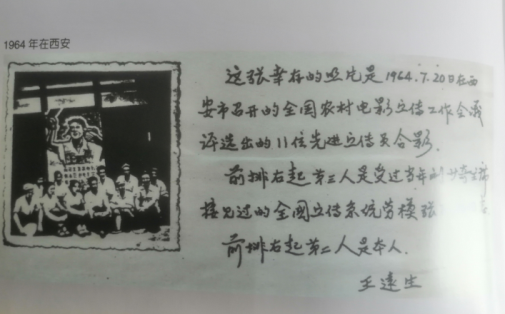 1964年在西安
这张幸存的照片是1964.7.20日在西
安市召开的全国农村电影宣传工作会议
评选出的11位先进宣传员合影.
前排右起第三人是受过
接见过的全国宣传系统劳模张
前排右起第二人是本人.
王达生